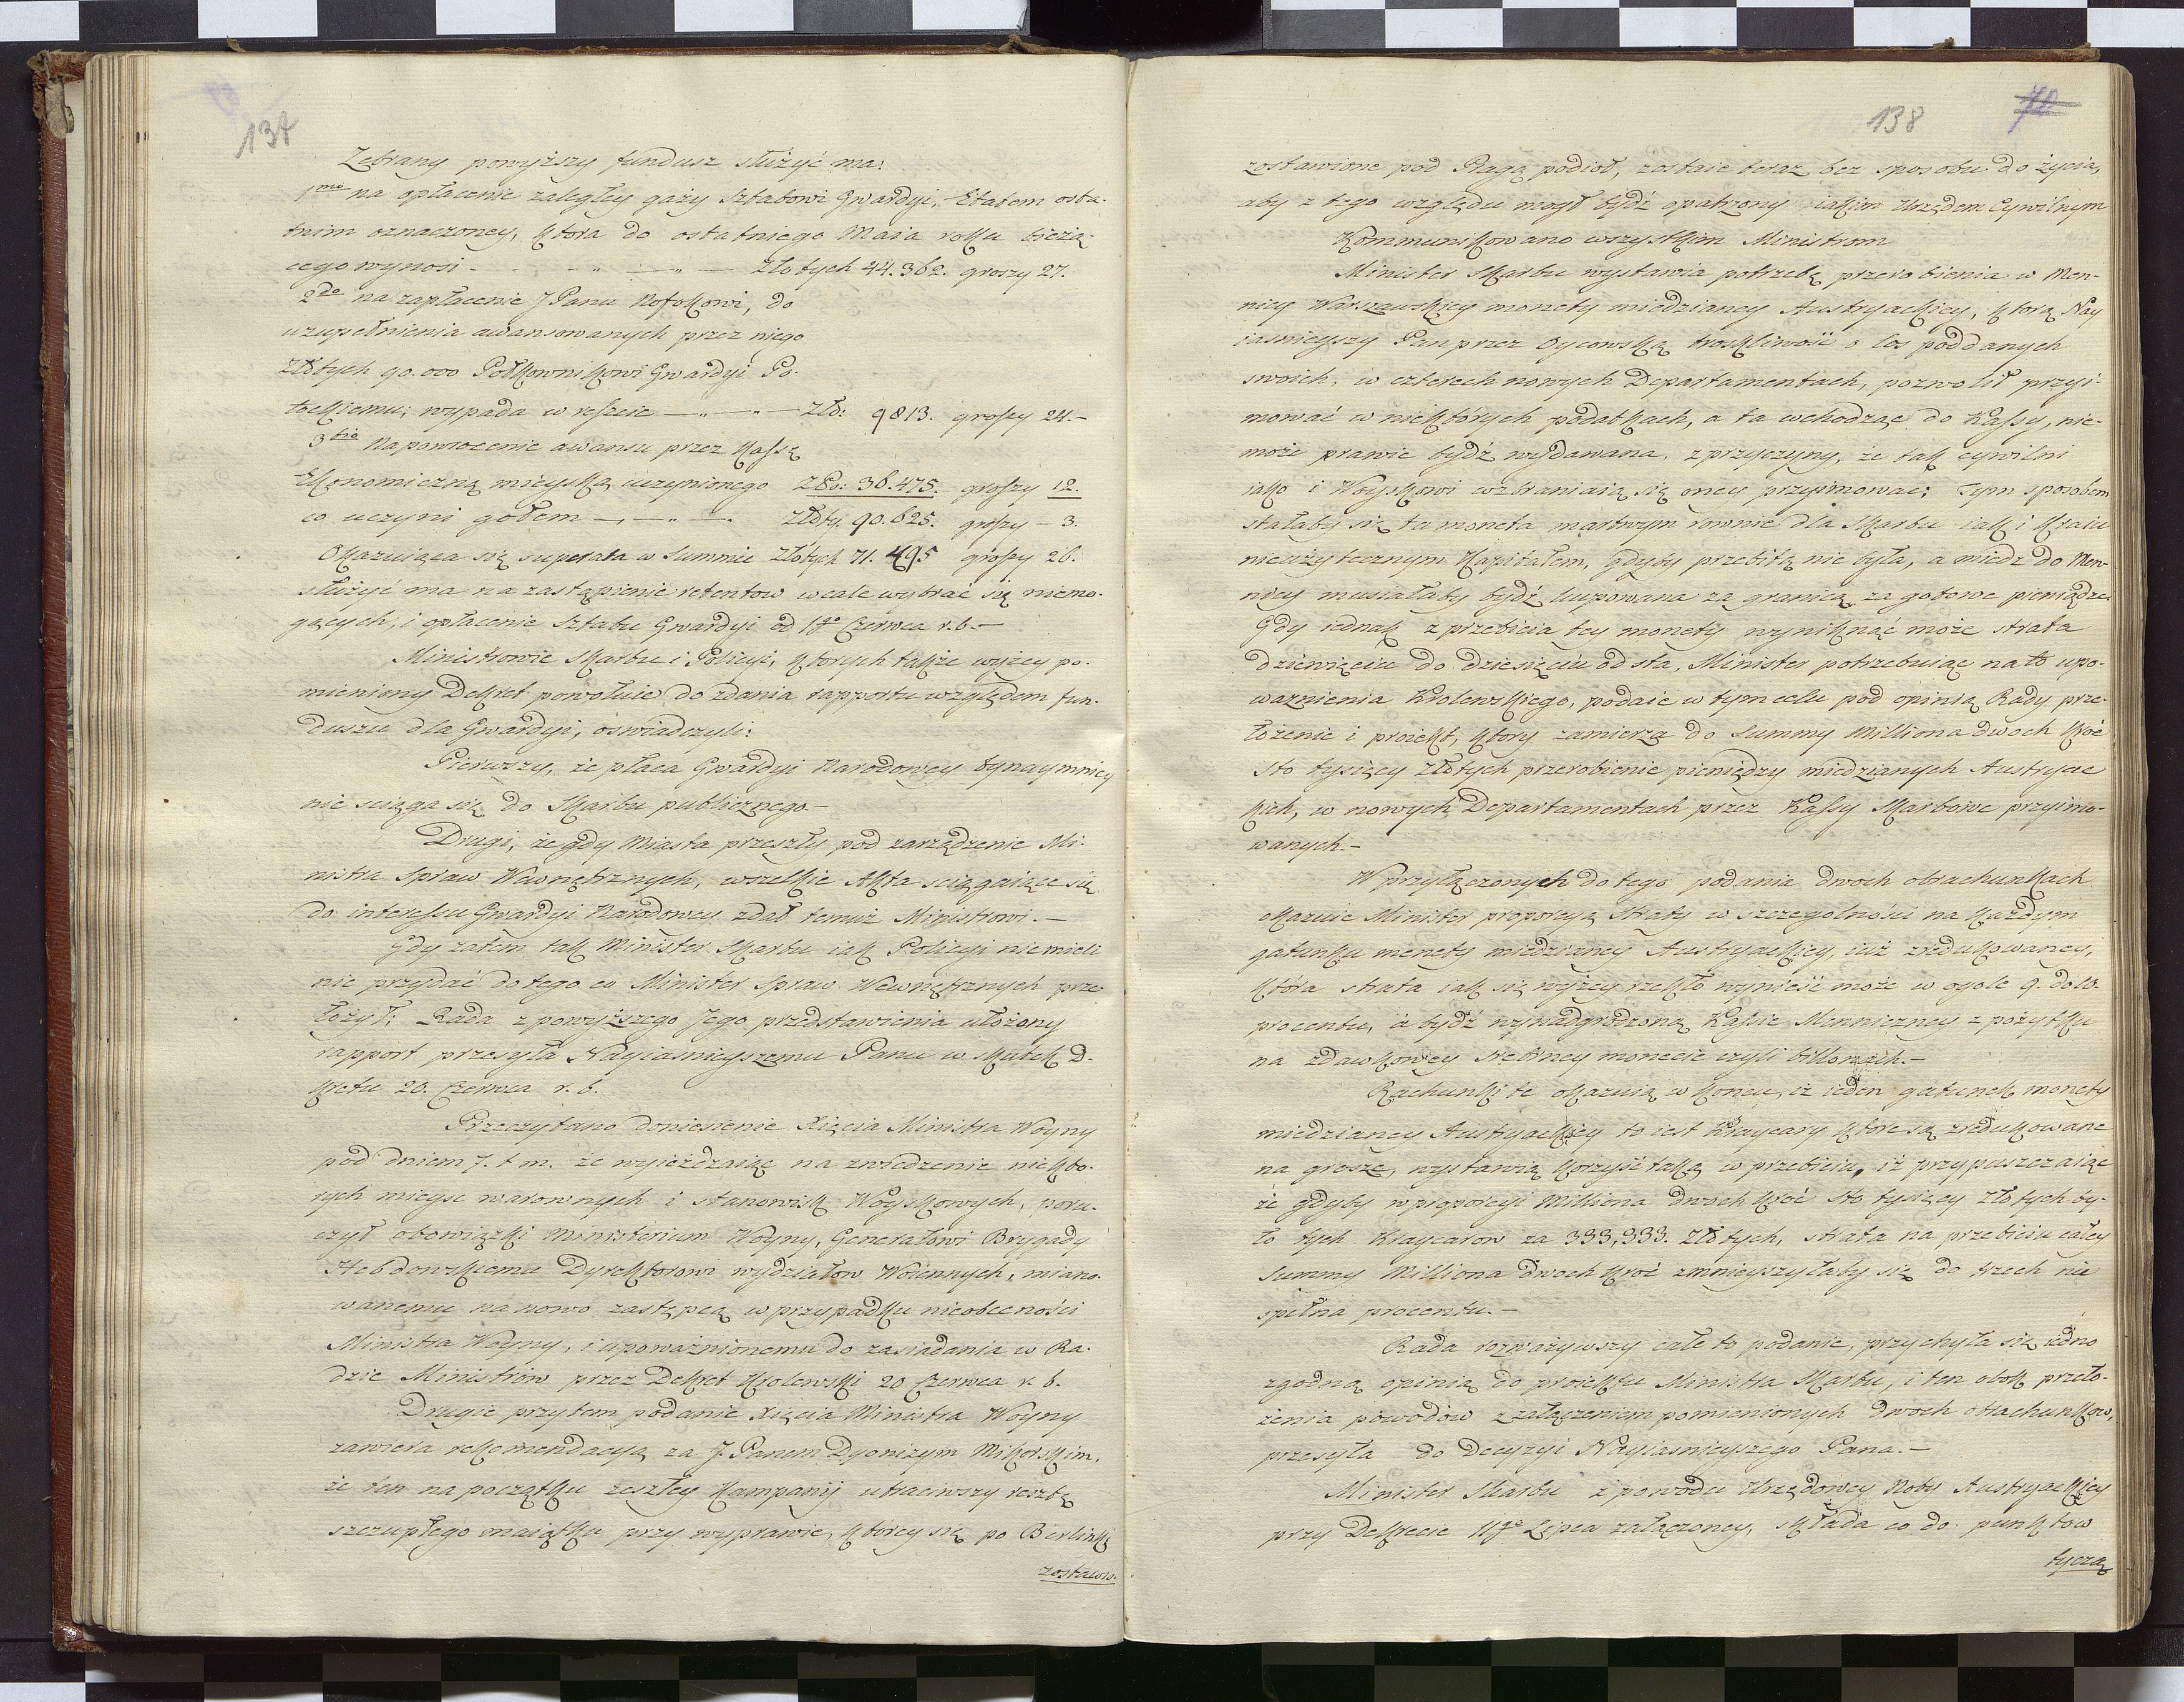 137
Zebrany powyższy fundusz służyć ma:
1mo na opłacenie zaległey gaży Sztabowi Gwardyi, Etatem osta-
tnim oznaczoney, która do ostatniego Maia roku bieżą-
cego wynosi - - " - " - Złotych 44.362. groszy 27.
2do na zapłacenie J Panu Rofokowi, do
uzupełnienia awansowanych przez niego
Złotych 90.000 Połkownikowi Gwardyi Po-
tockiemu; wypada w reszcie - " - " - Zło: 9813. groszy 24.-
3tio Na powrocenie awansu przez Kassę
Ekonomiczną mieyską uczynionego Zło: 36.475. groszy 12.
co uczyni gołem - " - " - Złoty: 90.625. groszy - 3.
Okazuiąca się superata w Summie Złotych 71.495 groszy 26.
służyć ma na zastąpienie retentow wcale wybrać się niemo-
gących, i opłacenie Sztabu Gwardyi od 1go Czerwca r. b.-
Ministrowie Skarbu i Policyi, których także wyżey po-
mieniony Dekret powołuie do zdania rapportu względem fun-
duszu dla Gwardyi, oswiadczyli:
Pierwszy, że płaca Gwardyi Narodowey bynaymniey
nie sciąga się do Skarbu publicznego.-
Drugi, że gdy Miasta przeszły pod zarządzenie Mi-
nistra Spraw Wewnętrznych, wszelkie Akta sciągaiące się
do interessu Gwardyi Narodowey zdał temuż Ministrowi.-
Gdy zatem tak Minister Skarbu iak Policyi nie mieli
nic przydać do tego co Minister Spraw Wewnętrznych prze-
łożył; Rada z powyższego Jego przedstawienia ułożony
rapport przesyła Nayiasnieyszemu Panu w skutek D-
kretu 20. Czerwca r. b.
Przeczytano doniesienie Xięcia Ministra Woyny
pod dniem 7. t. m. że wyieżdzaiąc na zwiedzenie niekto-
rych mieysc warownych i stanowisk Woyskowych, poru-
czył obowiązki Ministerium Woyny, Generałowi Brygady
Hebdowskiemu Dyrektorowi wydziałow Woiennych, miano-
wanemu na nowo zastępcą w przypadku nieobecności
Ministra Woyny, i upoważnionemu do zasiadania w Ra-
dzie Ministrów przez Dekret Krolewski 20 Czerwca r. b.
Drugie przytem podanie Xięcia Ministra Woyny
zawiera rekomendacyą za J. Panem Dyonizym Mikorskim,
że ten na początku zeszłey Kampanij utraciwszy resztę
szczupłego maiątku przy wyprawie, którey się po Berlinki
zostawio.
138
zostawione pod Pragą podioł, zostaie teraz bez sposobu do życia,
aby z tego względu mogł bydź opatrzony iakim Urzędem Cywilnym
Kommunikowano wszystkim Ministrom
Minister Skarbu wystawia potrzebę przerobienia w Men-
nicy Warszawskiey monety miedzianey Austryackiey, którą Nay
iasnieyszy Pan przez Oycowską troskliwość o los poddanych
swoich, w czterech nowych Departamentach, pozwolił przyi-
mować w niektórych podatkach, a ta wchodząc do Kassy, nie-
może prawie bydź wydawana, z przyczyny, że tak cywilni
iako i Woyskowi wzbraniaią się oney przyimować; tym sposobem
stałaby się ta moneta martwym rownie dla Skarbu iak i Kraiu
nieużytecznym Kapitałem, gdyby przebitą nie była, a miedz do Men-
nicy musiałaby bydź kupowana za granicą za gotowe pieniądze.
Gdy iednak z przebicia tey monety wyniknąć może strata
dziewięciu do dziesięciu od sta, Minister potrzebuiąc na to upo-
ważnienia Krolewskiego, podaie w tym celu pod opinią Rady prze-
łożenie i proiekt, ktory zamierza do Summy Milliona dwoch kroć
sto tysięcy Złotych przerobienie pieniędzy miedzianych Austryac
kich, w nowych Departamentach przez Kassy Skarbowe przyimo-
wanych.-
W przyłączonych do tego podania dwoch obrachunkach
okazuie Minister proporcyą straty w szczegolności na każdym
gatunku monety miedzianey Austryackiey, iuż zredukowaney,
która strata iak się wyżey rzekło wynieść może w ogole 9. do 10.
procentu, a bydź wynadgrodzoną Kassie Menniczney z pożytku
na zdawkowey srebrney monecie czyli billonach.-
Rachunki te okazuią w koncu, iż ieden gatunek monety
miedzianey Austryackiey to iest Kraycary które są zredukowane
na grosze, wystawią korzyść taką w przebiciu, iż przypuszczaiąc
że gdyby w proporcyi Milliona dwoch kroć sto tysięcy Złotych by-
ło tych Kraycarow za 333,333. Złotych, strata na przebiciu całey
Summy Milliona dwoch kroć zmnieyszyłaby się do trzech nie
spełna procentu.-
Rada rozważywszy całe to podanie, przychyla się iedno
zgodną opinią do proiektu Ministra Skarbu, i ten obok przeło-
żenia powodów z załączeniem pomienionych dwoch obrachunkow,
przesyła do Decyzyi Nayiasnieyszego Pana.-
Minister Skarbu z powodu Urzędowey Noty Austryackiey
przy Dekrecie 11go Lipca załączoney, składa co do punktow
tyczą